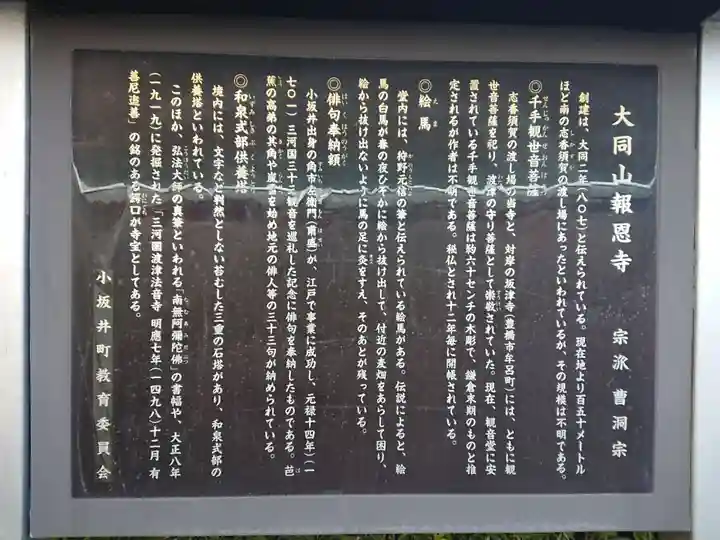 大同山報恩寺　宗派　曹洞宗
創建は、大同二年(八〇七)と伝えられている。現在地より百五十メートル
ほど南の志香須賀の渡し場にあったといわれているが、その規模は不明である。
◎千手観世音菩薩
志香須賀の渡し場の当寺と、対岸の坂津寺(豊橋市牟呂町)には、ともに観
世音菩薩を祀り、渡津の守り菩薩として崇敬されていた。現在、観音堂に安
置されている千手観世音菩薩は約六十センチの木彫で、鎌倉末期のものと推
定されるが作者は不明である。秘仏とされ十二年毎に開帳されている。
◎絵馬
堂内には、狩野元信の筆と伝えられている絵馬がある。伝説によると、絵
馬の白馬が春の夜ひそかに絵から抜け出して、付近の麦畑をあらして困り、
絵から抜け出ないように馬の足に灸をすえ、そのあとが残っている。
◎俳句奉納額
小坂井出身の角市左衛門(甫盛)が、江戸で事業に成功し、元禄十四年)(一
七〇一)三河国三十三観音を巡礼した記念に俳句を奉納したものである。芭
蕉の高弟の其角や嵐雪を始め地元の俳人等の三十三句が納められている。
◎和泉式部供養塔
境内には、文字など判然としない苔むした三重の石塔があり、和泉式部の
供養塔といわれている。
このほか、弘法大師の真筆といわれる「南無阿彌陀佛」の書幅や、大正八年
(一九一九)に発掘された「三河国渡津法音寺　明應七年(一四九八)十二月　有
善尼造善」の銘のある鰐口が寺宝としてある。
小坂井町教育委員会